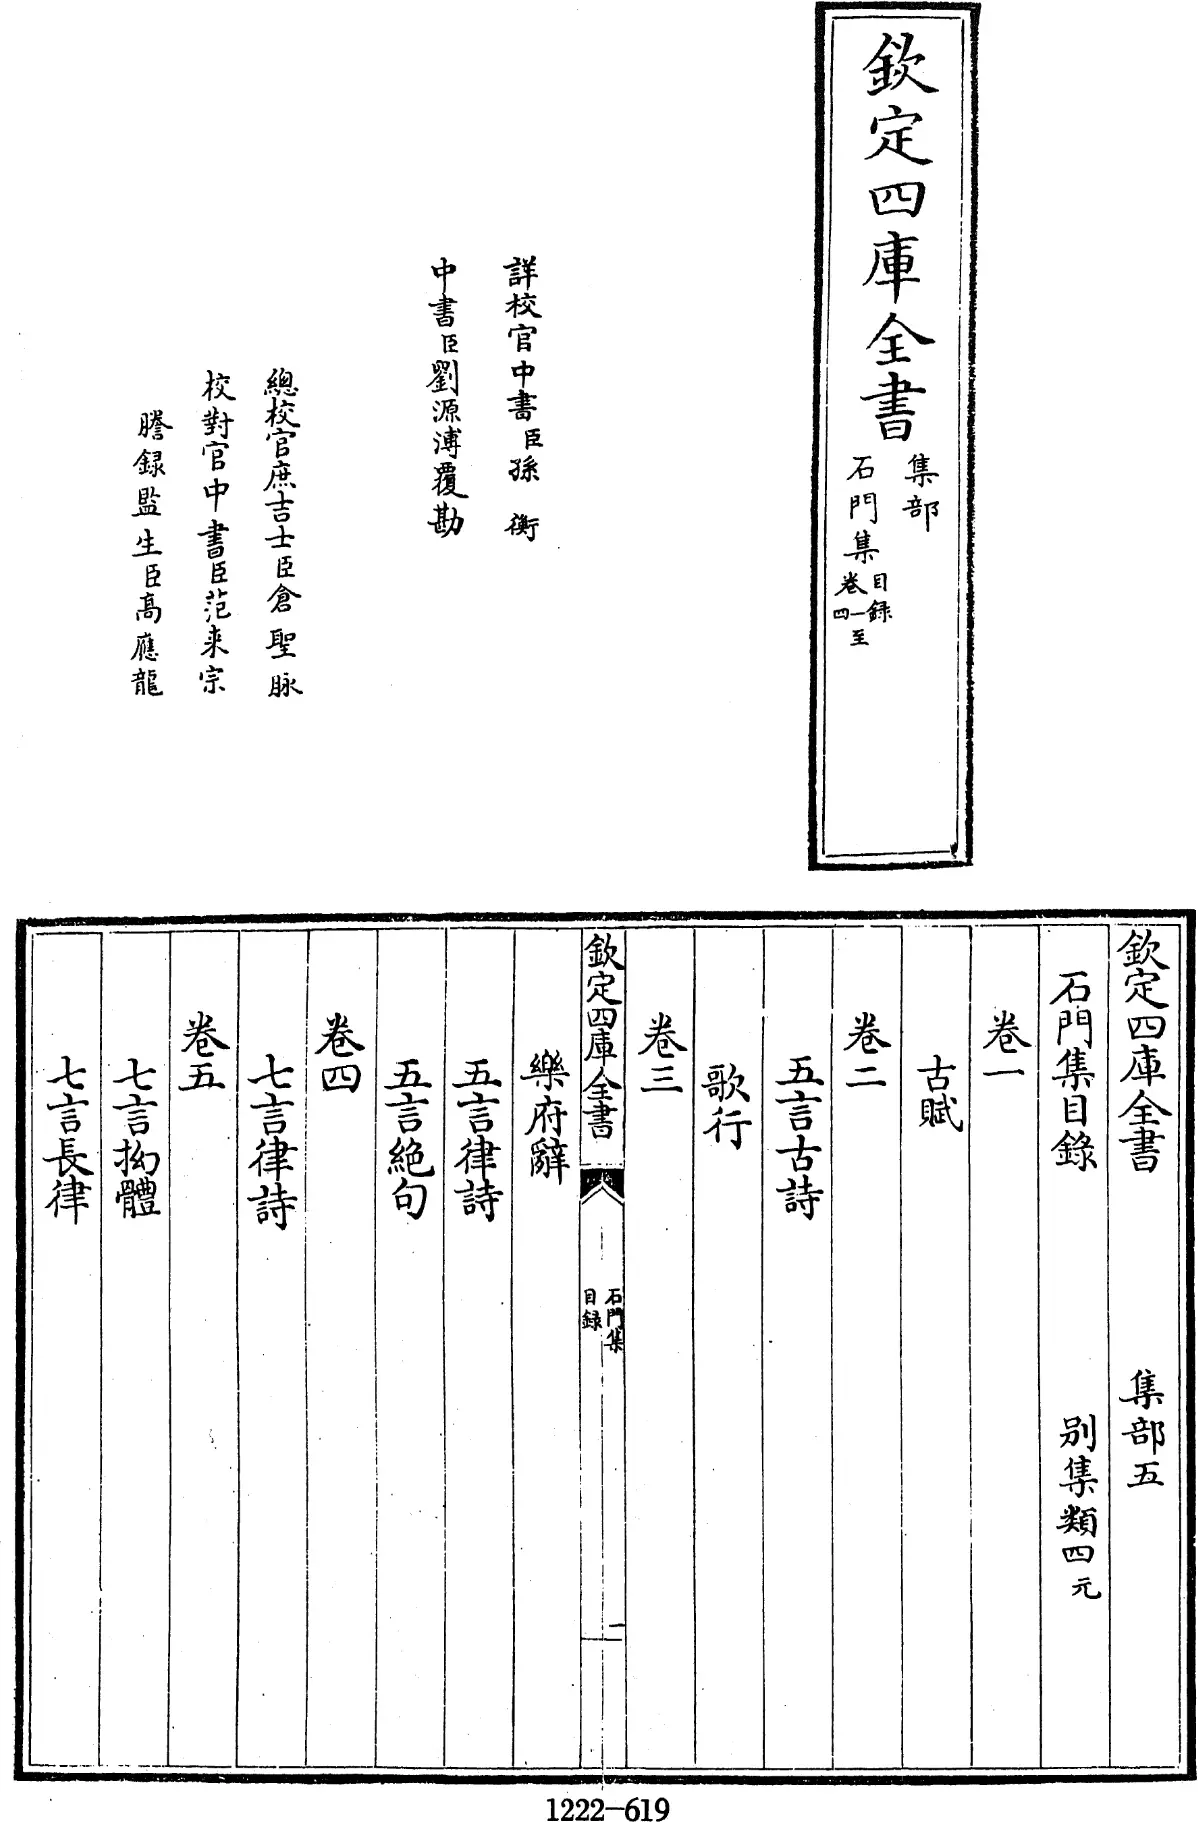 欽定四庫全書
集部
石門集
目錄
卷一至
四
詳校官中書臣孫衡
中書臣劉源溥覆勘
總校官庶吉士臣倉聖脉
校對官中書臣范来宗
謄録監生臣高應龍
欽定四庫全書 集部五
石門集目錄 别集類四元
卷一
古賦
卷二
五言古詩
歌行
卷三
欽定四庫全書
石門集
目録
一
樂府辭
五言律詩
五言絕句
卷四
七言律詩
卷五
七言拗體
七言長律
1222-619